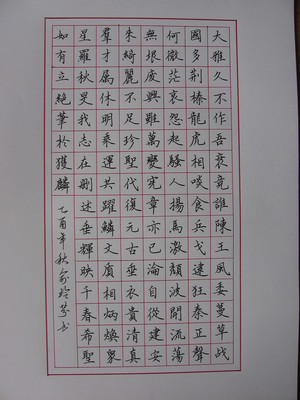 大雅久不作吾衰竟誰陳王風委蔓草战
國多荆榛龍虎相啖食兵戈逮狂秦正聲
何微茫哀怨起騷人揚馬激頹波開流蕩
無垠廢興雖萬變憲章亦已淪自從建安
来綺麗不足珍聖代復元古垂衣貴清真
羣才屬休明乘運共躍鱗文質相炳煥眾
星羅秋旻我志在刪述垂輝映千春希聖
如有立絕筆於獲麟 乙酉年秋俞玲芬书